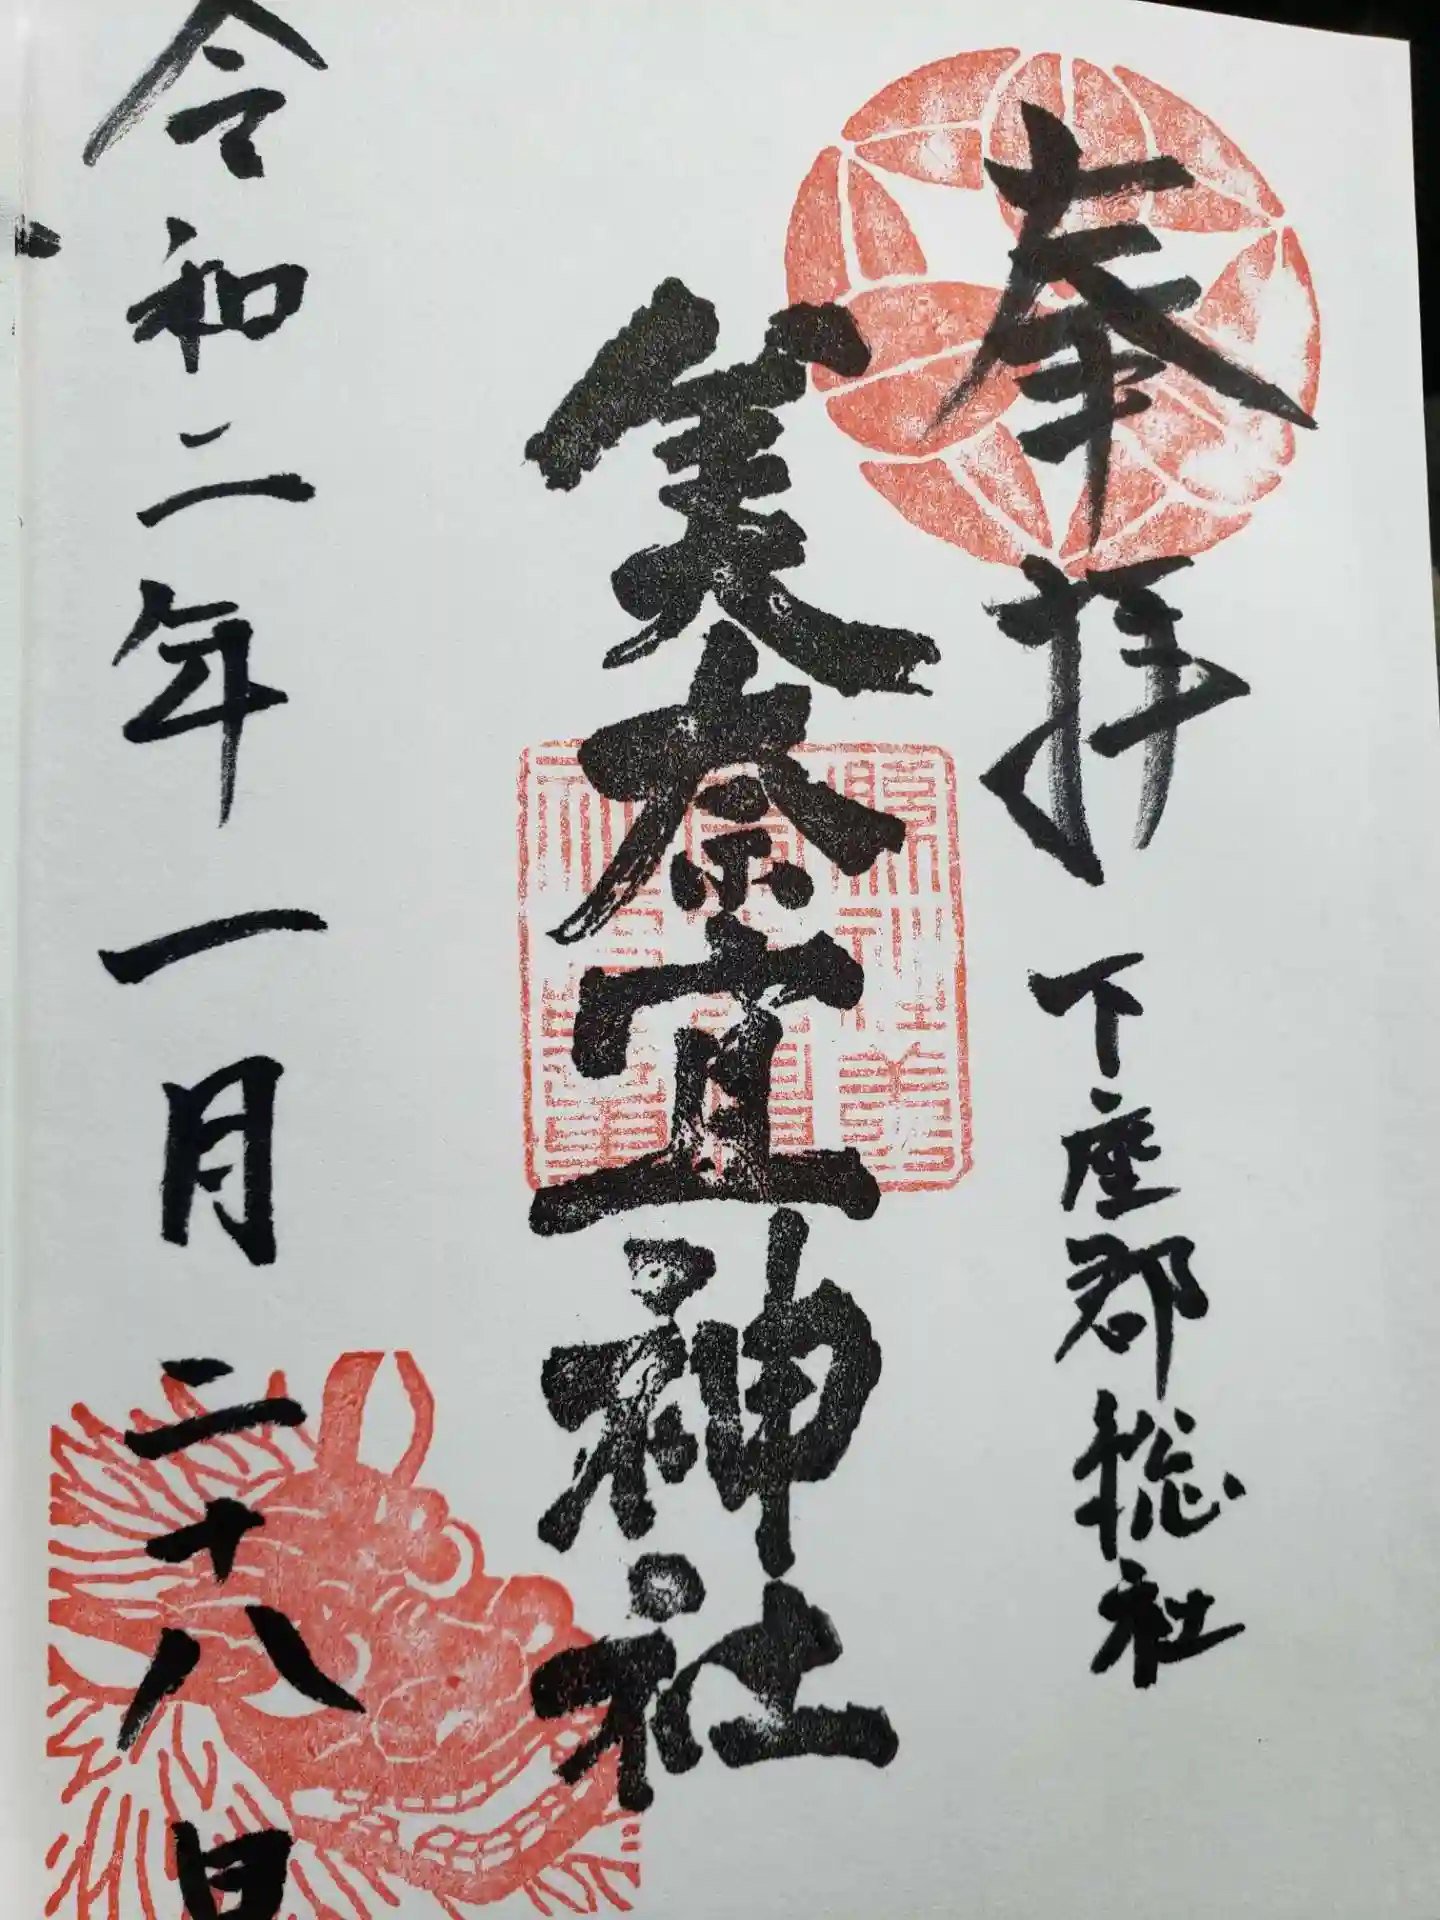 奉拝 下座郡総社
美奈宜神社
令和二年一月二十八日